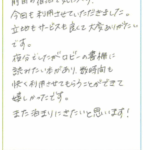 前回の宿泊でもいい、
今回も利用させていただきました。
立地もサービスも良くて大変ありがたい
です。
指令としたがロビーの書棚に
読みたい本があり、数時間も
快く利用させてもらうことができて
嬉しかったです。
また泊まりにきたいと思います!